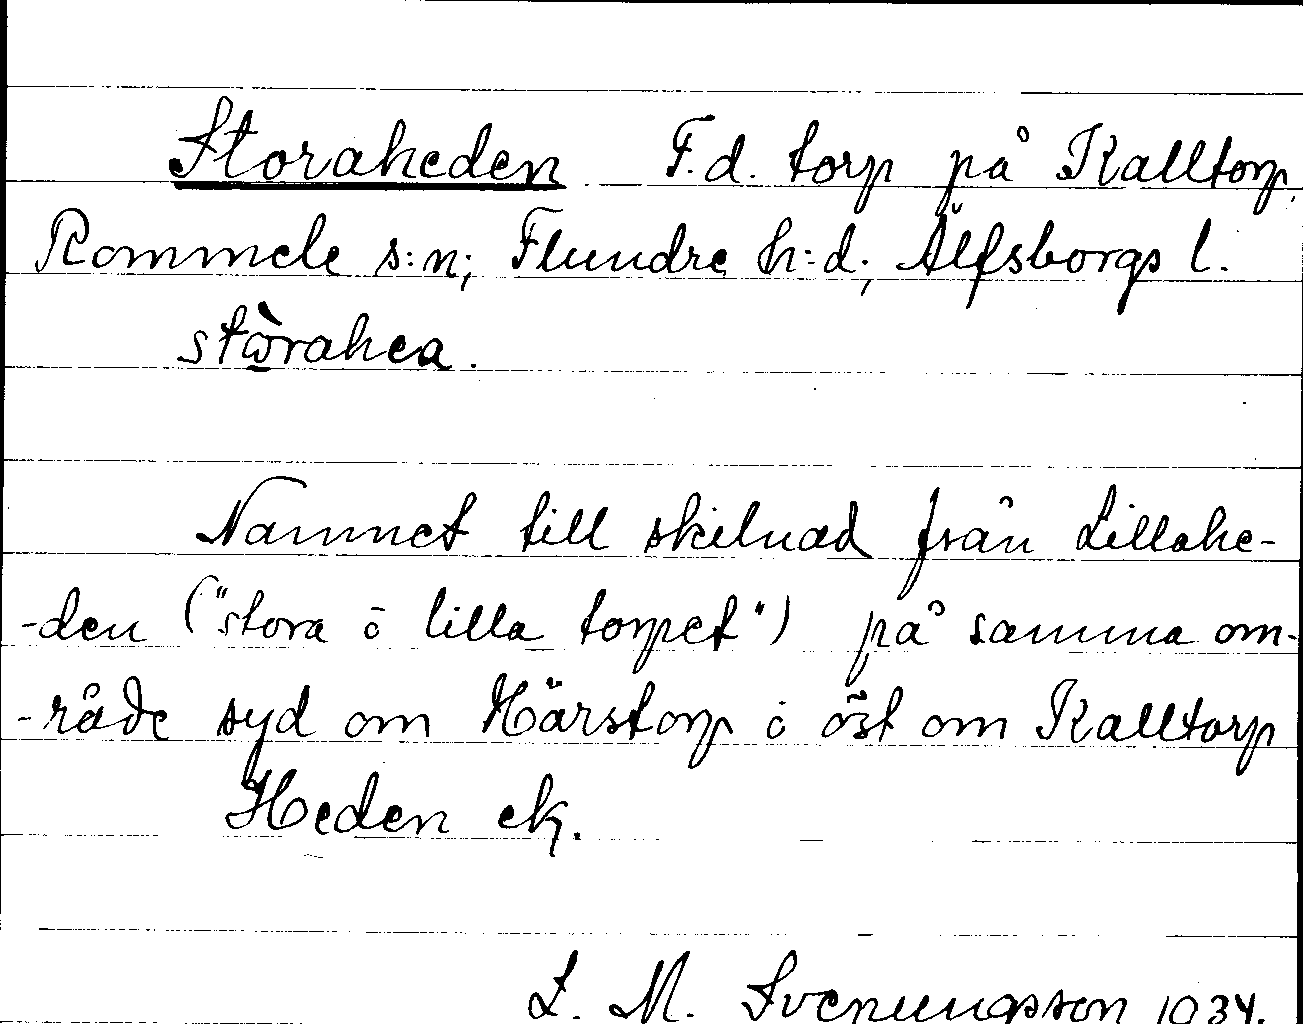 Storaheden F.d. torp på Kalltorp,
Rommele s:n; Flundre h:d; Älfsborgs l.
stòrahea.
Namnet till skilnad från Lillahe-
-den ("stora ō lilla torpet") på samma om-
-råde syd om Härstorp ō öst om Kalltorp
Heden ek.
L. M. Svenungsson 1934.